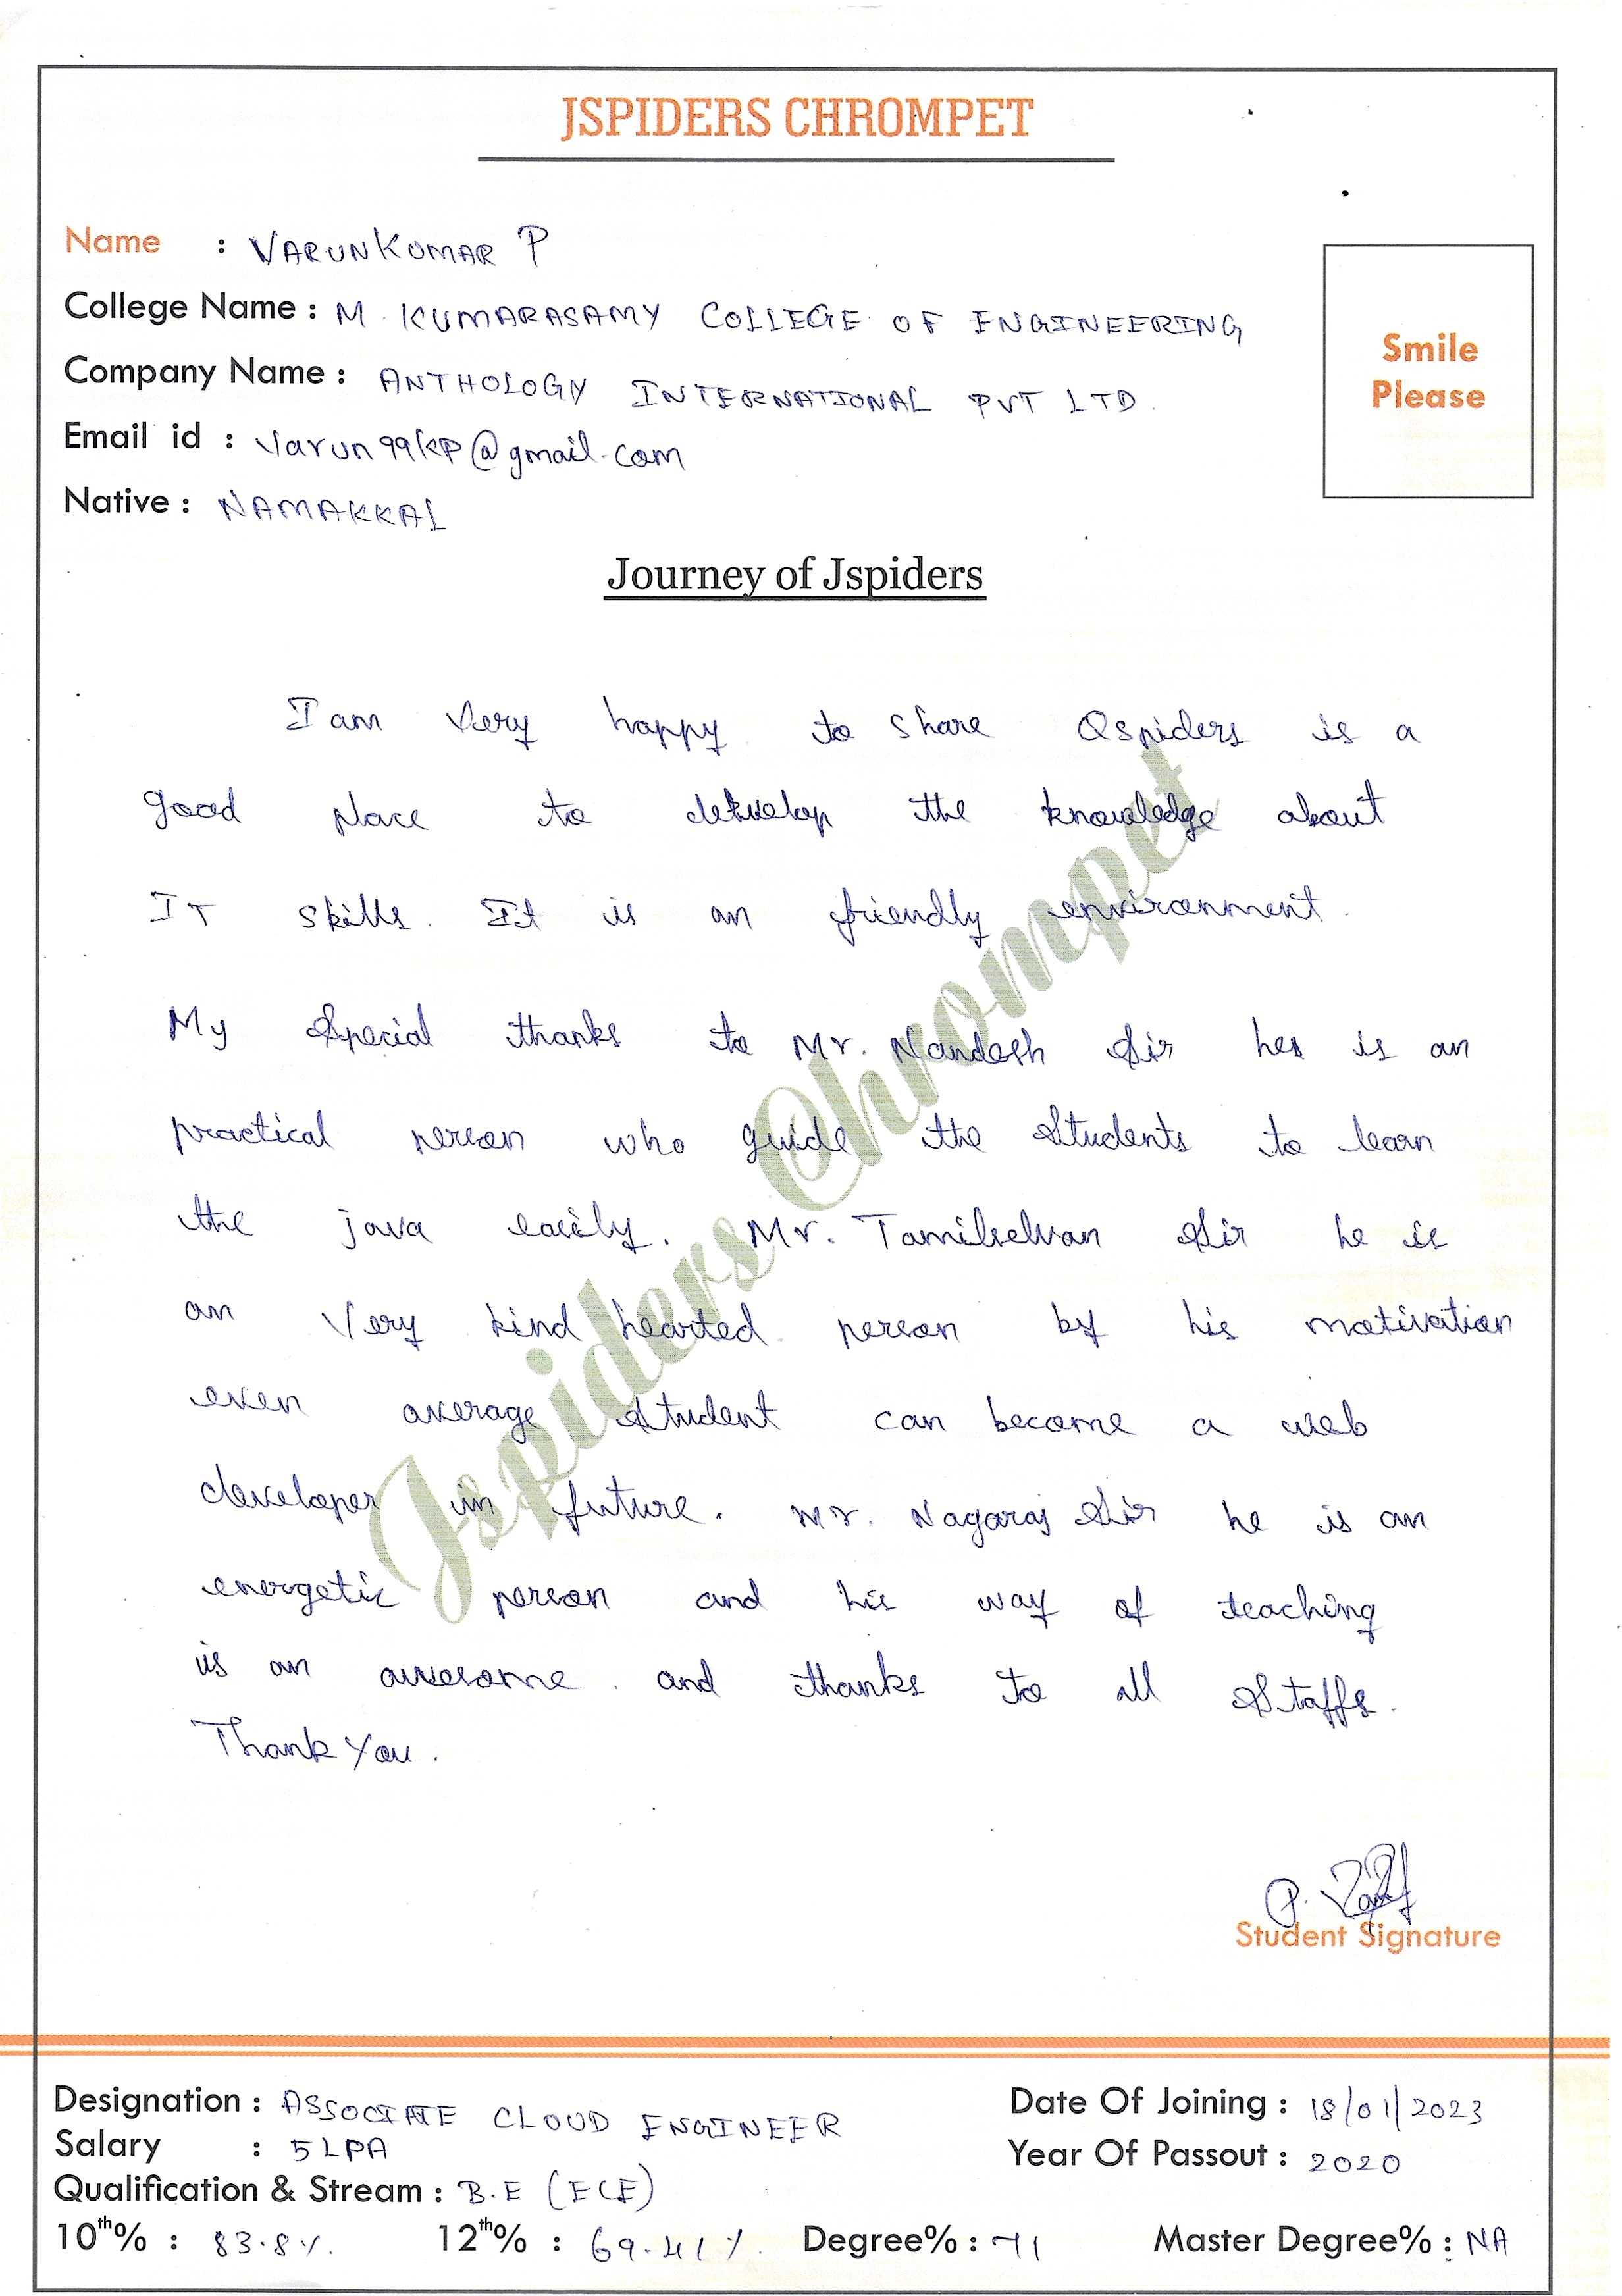 JSPIDERS CHROMPET
Name : VARUNKUMAR P
College Name : M. KUMARASAMY COLLEGE OF ENGINEERING
Company Name : ANTHOLOGY INTERNATIONAL PVT LTD.
Email id : Varun99kp@gmail.com
Native : NAMAKKAL
Smile
Please
Journey of Jspiders
I am Very happy to share Qspiders is a
good place to develop the knowledge about
IT skills. It is an friendly environment.
My Special thanks to Mr. Nandesh Sir hes is an
practical person who guide the Students to learn
the java easily. Mr. Tamilselvan Sir he is
an Very kind hearted person by his motivation
even average Student can become a web
developer in future. Mr. Nagaraj Sir he is an
energetic person and his way of teaching
is an awesome. and thanks to all Staffs.
Thank You.
Jspiders Chrompet
P.
Student Signature
Designation : ASSOCIATE CLOUD ENGINEER
Date Of Joining : 18/01/2023
Salary : 5 LPA
Year Of Passout : 2020
Qualification & Stream : B.E (ECE)
10th% : 83.8% 12th% : 69.41% Degree% : 71 Master Degree% : NA